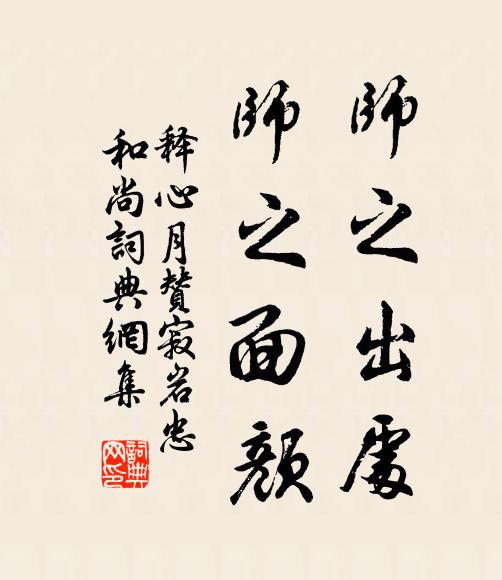 師之出處
師之面顏
释心月贊寂岩忠
和尚詞典網集
詞典
网印